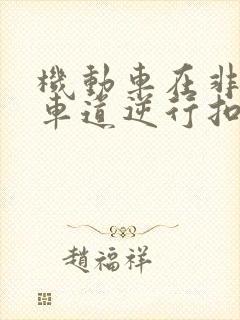 機動車在非
車道逆行扣
趙福祥